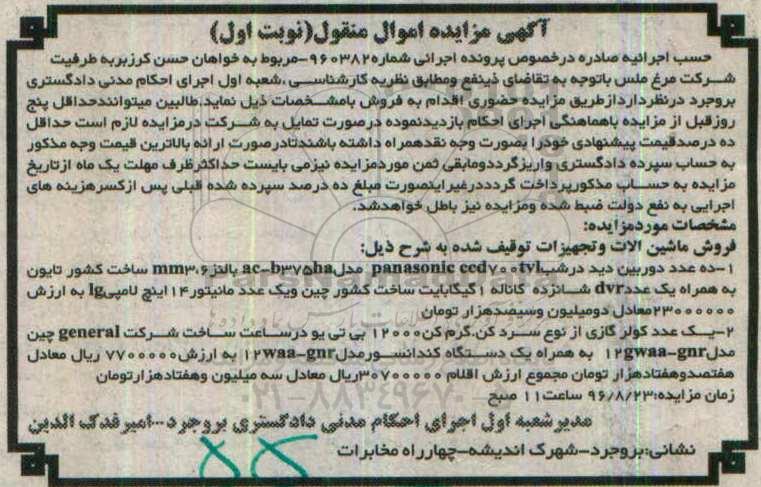 آگهی مزایده اموال منقول(نوبت اول)
حسب اجرائیه صادره درخصوص پرونده اجرائی شماره۹۶۰۳۸۲-مربوط به خواهان حسن کرزبربه طرفیت
شرکت مرغ ملس باتوجه به تقاضای ذینفع ومطابق نظریه کارشناسی ،شعبه اول اجرای احکام مدنی دادگستری
بروجرد درنظرداردازطریق مزایده حضوری اقدام به فروش بامشخصات ذیل نماید.طالبین میتوانندحداقل پنج
روزقبل از مزایده باهماهنگی اجرای احکام بازدیدنموده درصورت تمایل به شرکت درمزایده لازم است حداقل
ده درصدقیمت پیشنهادی خودرا بصورت وجه نقدهمراه داشته باشندتادرصورت ارائه بالاترین قیمت وجه مذکور
به حساب سپرده دادگستری واریزگرددومابقی ثمن موردمزایده نیزمی بایست حداکثرظرف مهلت یک ماه ازتاریخ
مزایده به حساب مذکورپرداخت گردددرغیراینصورت مبلغ ده درصد سپرده شده قبلی پس ازکسرهزینه های
اجرایی به نفع دولت ضبط شده ومزایده نیز باطل خواهدشد.
مشخصات موردمزایده:
فروش ماشین الات وتجهیزات توقیف شده به شرح ذیل:
۱-ده عدد دوربین دید درشب panasonic ccd۷۰۰tvl مدلac-b۳۷۵ha بالنز۳.۶mm ساخت کشور تایون
به همراه یک عددdvr شانزده کاناله ۱گیگابایت ساخت کشور چین ویک عدد مانیتور۱۴اینچ لامپیlg به ارزش
۲۳۰۰۰۰۰۰معادل دومیلیون وسیصدهزار تومان
۲-یک عدد کولر گازی از نوع سرد کن.گرم کن۱۲۰۰۰ بی تی یو درساعت ساخت شرکت general چین
مدل۱۲gwaa-gnr به همراه یک دستگاه کندانسورمدل۱۲waa-gnr به ارزش۷۷۰۰۰۰۰ ریال معادل
هفتصدوهفتادهزار تومان مجموع ارزش اقلام ۳۰۷۰۰۰۰۰ریال معادل سه میلیون وهفتادهزارتومان
زمان مزایده:۹۶/۸/۲۳ ساعت۱۱ صبح
مدیرشعبه اول اجرای احکام مدنی دادگستری بروجرد--امیرفدک الدین
نشانی:بروجرد-شهرک اندیشه-چهارراه مخابرات
۰۲۱-۸۸۳۴۹۶۷۰